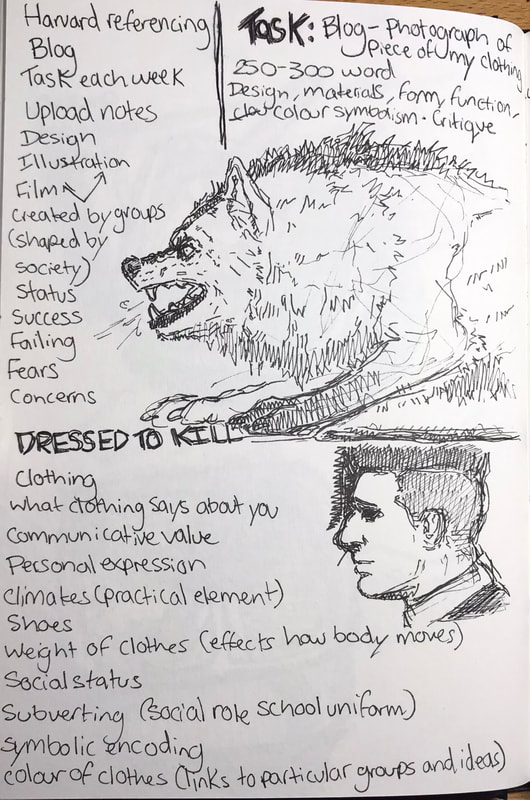 Harvard referencing
Blog
Task each week
Upload notes
Design
Illustration
Film
created by groups
(shaped by
society)
Status
Success
Failing
Fears
Concerns
TASK: Blog - Photograph of
Piece of my clothing.
250-300 word
Design, materials, form, function,
colour symbolism. Critique
DRESSED TO KILL
Clothing
what clothing says about you
communicative value
Personal expression
Climates (practical element)
Shoes
weight of clothes (effects how body moves)
Social status
Subverting (social role school uniform)
symbolic encoding
colour of clothes (links to particular groups and ideas)